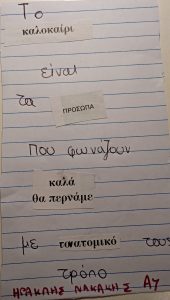 Το
καλοκαίρι
είναι
τα
ΠΡΟΣΩΠΑ
που φωνάζουν
καλά
θα περνάμε
με το ατομικό τους
τρόπο
ΗΡΑΚΛΗΣ ΝΑΚΑΚΗΣ Α4